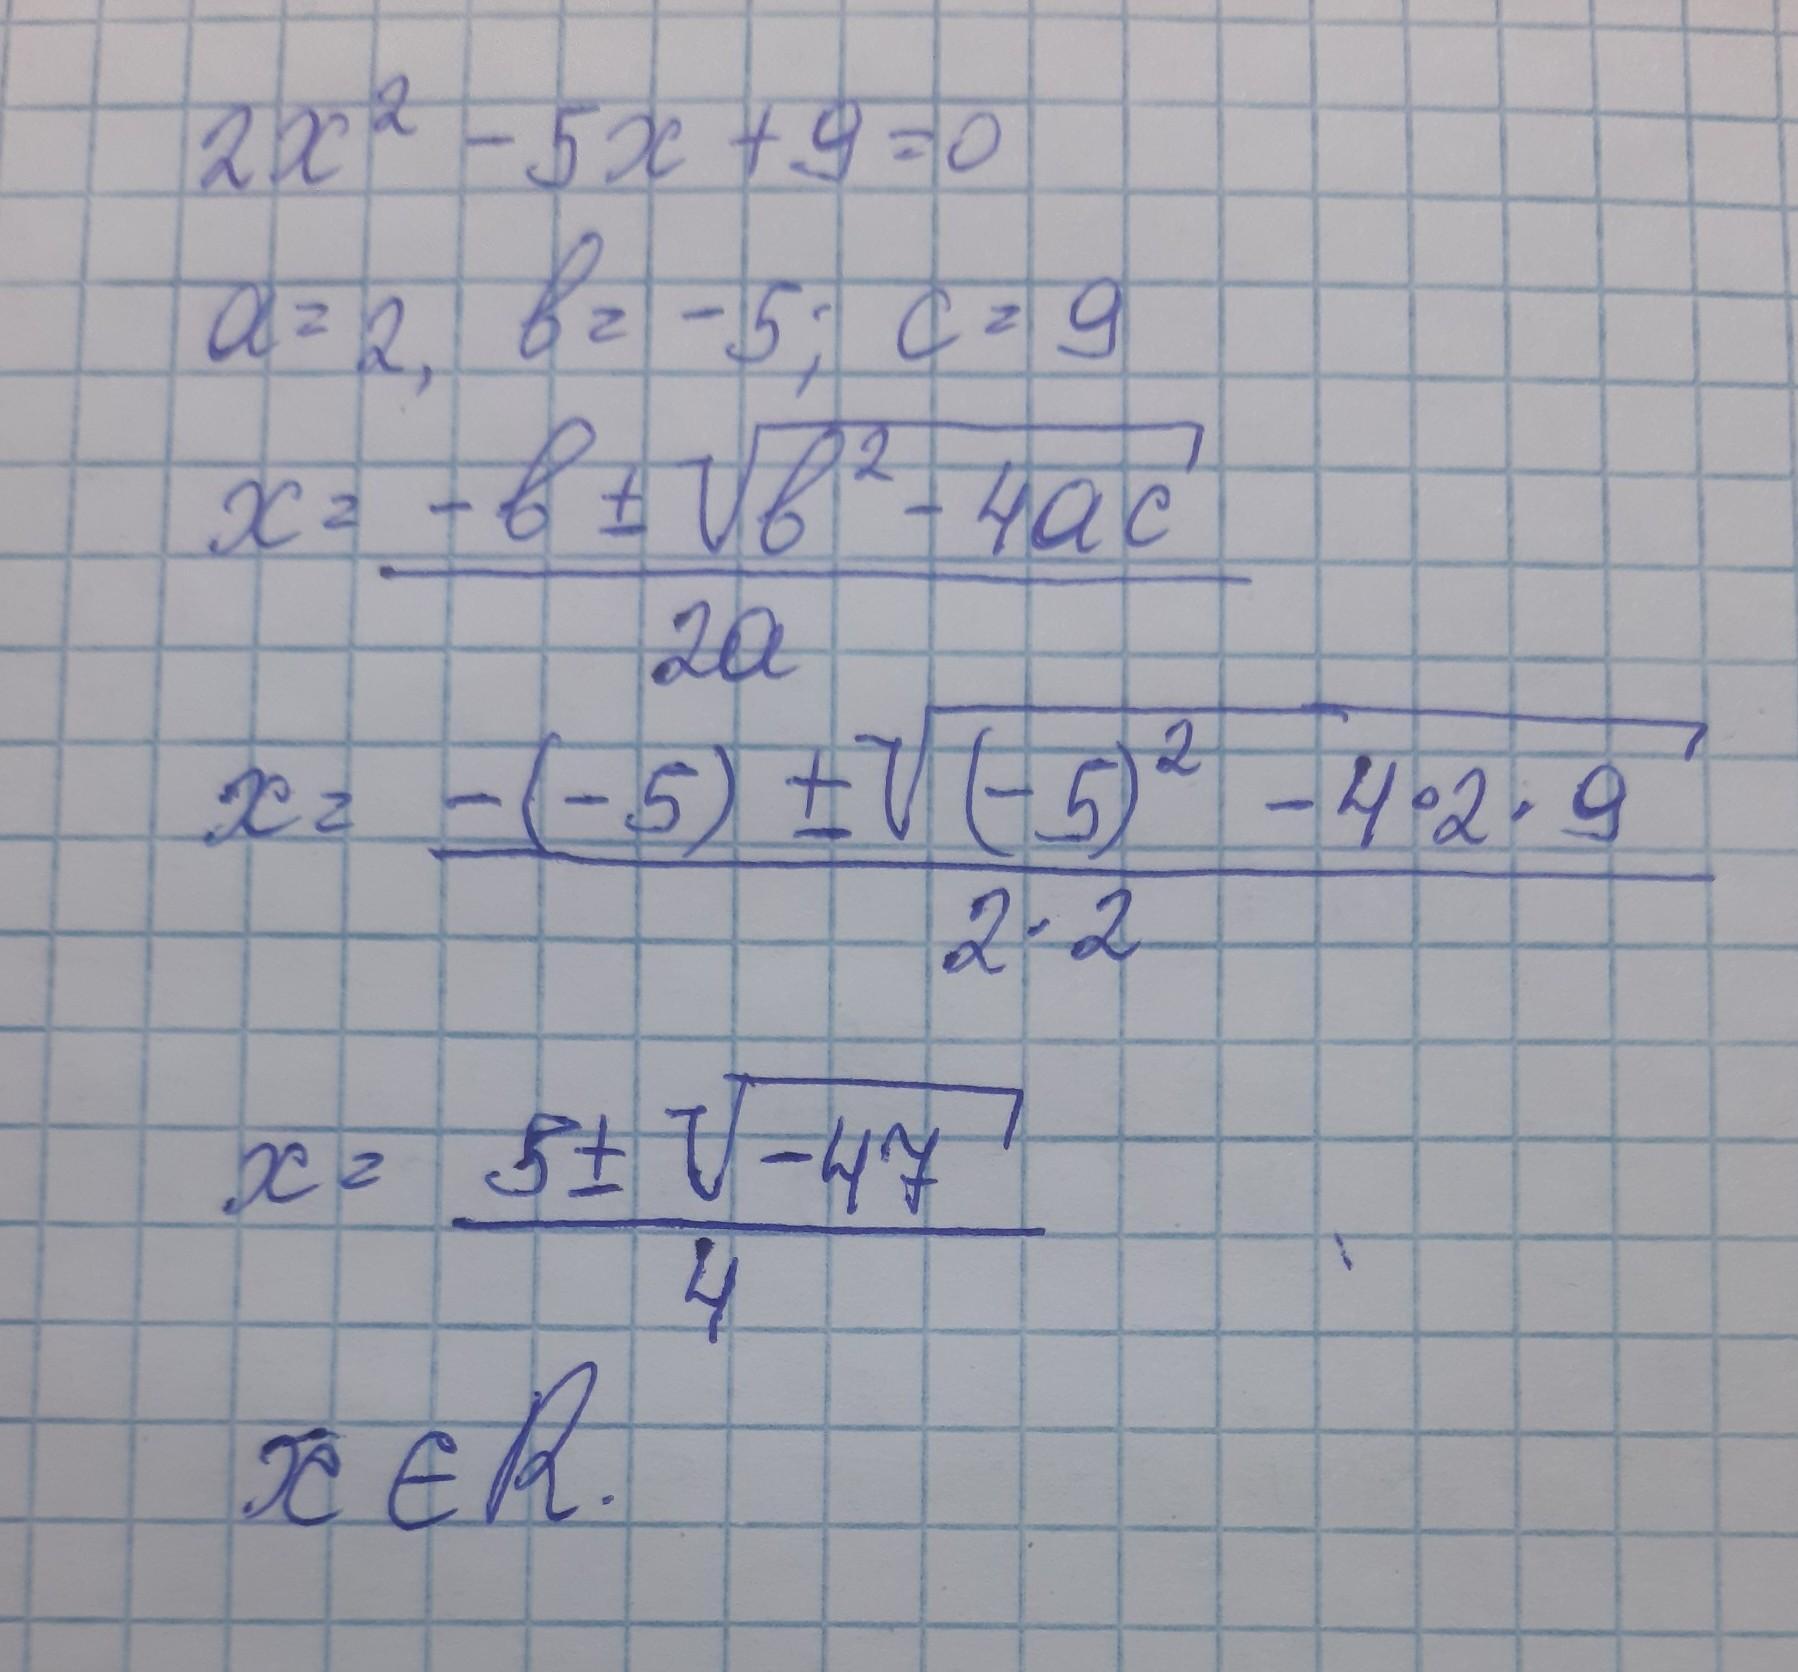 2x² - 5x + 9 = 0
a = 2, b = -5; c = 9
x = (-b ± √(b² - 4ac)) / 2a
x = (-(-5) ± √((-5)² - 4·2·9)) / 2·2
x = (5 ± √(-47)) / 4
x ∈ R.